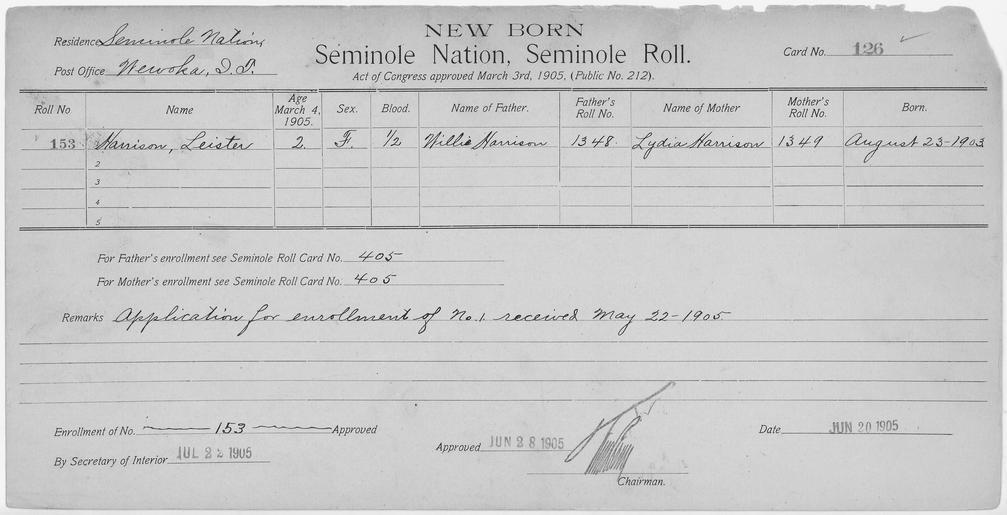 NEW BORN
Residence Seminole Nation,
Seminole Nation, Seminole Roll.
Card No. 126
Post Office Wewoka, I.T.
Act of Congress approved March 3rd, 1905, (Public No. 212).
Roll No Name Age March 4, 1905. Sex. Blood. Name of Father. Father's Roll No. Name of Mother Mother's Roll No. Born.
153 Harrison, Leister 2 F. 1/2 Willie Harrison 1348. Lydia Harrison 1349 August 23-1903
2
3
4
5
For Father's enrollment see Seminole Roll Card No. 405
For Mother's enrollment see Seminole Roll Card No. 405
Remarks Application for enrollment of No. 1. received May 22-1905
Enrollment of No. 153 Approved
Date JUN 20 1905
Approved JUN 28 1905
By Secretary of Interior JUL 22 1905
Chairman.